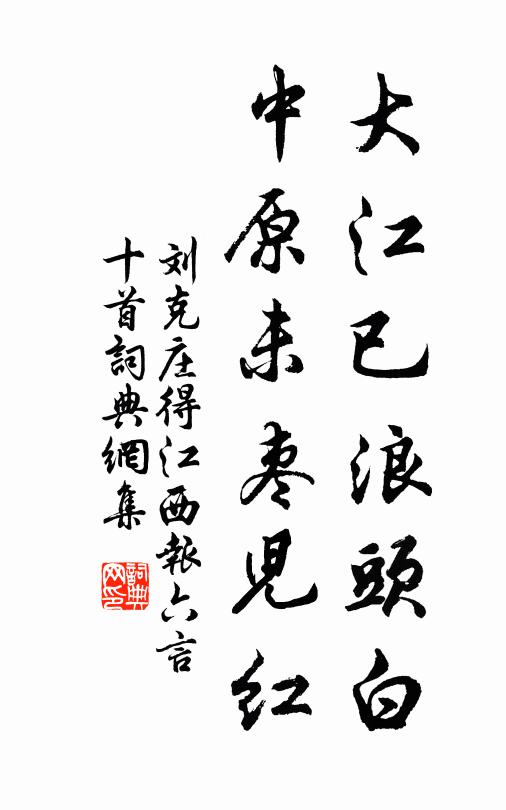 大江已浪頭白
中原未枣児紅
刘克庄得江西報六言
十首詞典網集
詞典
网印